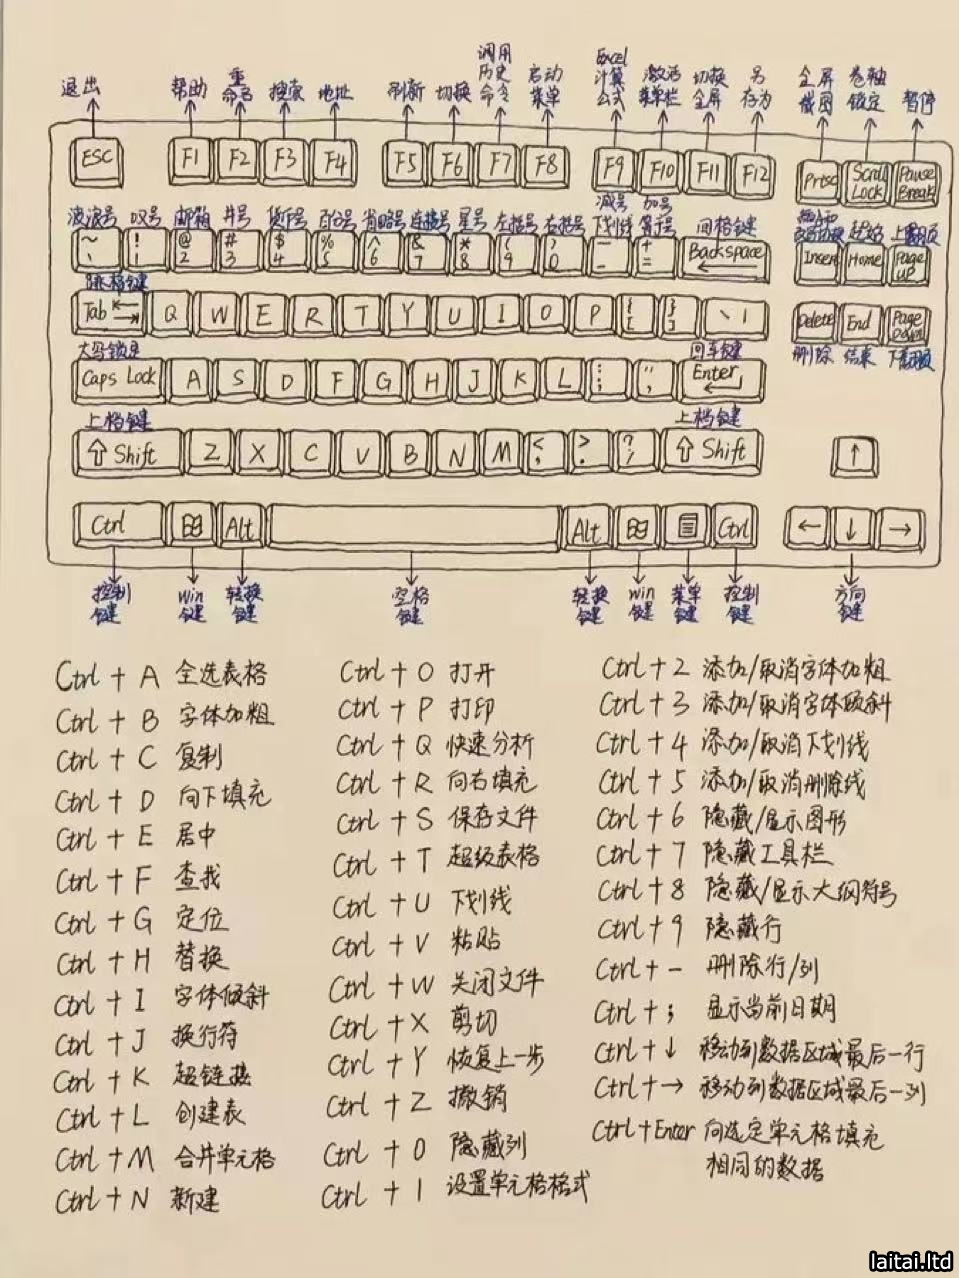 退出 帮助 重命名 搜索 地址 刷新 切换 调用历史命令 启动菜单 Excel计算公式 激活菜单栏 切换全屏 另存为 全屏截图 卷轴锁定 暂停
ESC F1 F2 F3 F4 F5 F6 F7 F8 F9 F10 F11 F12 Prtsc Scroll Lock Pause Break
波浪号 叹号 邮箱 井号 货币号 百分号 省略号 连接号 星号 左括号 右括号 减号下划线 加号等于号 间格键 起始 上翻页
~ ` ! 1 @ 2 # 3 $ 4 % 5 ^ 6 & 7 * 8 ( 9 ) 0 _ - + = Backspace Insert Home Page UP
跳格键
Tab Q W E R T Y U I O P { [ } ] \ | Delete End Page Down
删除 结束 下翻页
大写锁定 回车键
Caps Lock A S D F G H J K L : ; " , Enter
上档键 上档键
Shift Z X C V B N M < , > . ? / Shift ↑
Ctrl Alt Alt Ctrl ← ↓ →
控制键 win键 转换键 空格键 转换键 win键 菜单键 控制键 方向键
Ctrl + A 全选表格
Ctrl + B 字体加粗
Ctrl + C 复制
Ctrl + D 向下填充
Ctrl + E 居中
Ctrl + F 查找
Ctrl + G 定位
Ctrl + H 替换
Ctrl + I 字体倾斜
Ctrl + J 换行符
Ctrl + K 超链接
Ctrl + L 创建表
Ctrl + M 合并单元格
Ctrl + N 新建
Ctrl + O 打开
Ctrl + P 打印
Ctrl + Q 快速分析
Ctrl + R 向右填充
Ctrl + S 保存文件
Ctrl + T 超级表格
Ctrl + U 下划线
Ctrl + V 粘贴
Ctrl + W 关闭文件
Ctrl + X 剪切
Ctrl + Y 恢复上一步
Ctrl + Z 撤销
Ctrl + 0 隐藏列
Ctrl + 1 设置单元格格式
Ctrl + 2 添加/取消字体加粗
Ctrl + 3 添加/取消字体倾斜
Ctrl + 4 添加/取消下划线
Ctrl + 5 添加/取消删除线
Ctrl + 6 隐藏/显示图形
Ctrl + 7 隐藏工具栏
Ctrl + 8 隐藏/显示大纲符号
Ctrl + 9 隐藏行
Ctrl + - 删除行/列
Ctrl + ; 显示当前日期
Ctrl + ↓ 移动到数据区域最后一行
Ctrl + → 移动到数据区域最后一列
Ctrl + Enter 向选定单元格填充
相同的数据
laitai.ltd